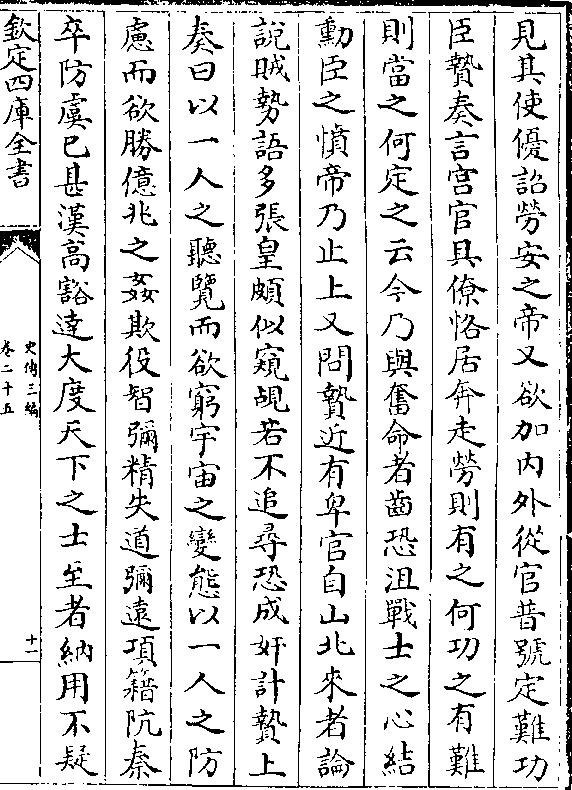 見其使優詔勞安之帝又欲加内外從官普號定難功
臣贄奏言宫官具僚恪居奔走勞則有之何功之有難
則當之何定之云今乃與奮命者齒恐沮戰士之心結
勳臣之憤帝乃止上又問贄近有卑官自山北來者論
說賊勢語多張皇頗似窺覘若不追尋恐成奸計贄上
奏曰以一人之聽覽而欲窮宇宙之變態以一人之防
慮而欲勝億兆之姦欺役智彌精失道彌遠項籍阬秦
卒防虞已甚漢高豁達大度天下之士至者納用不疑
欽定四庫全書
史傳三編
卷二十五
十一